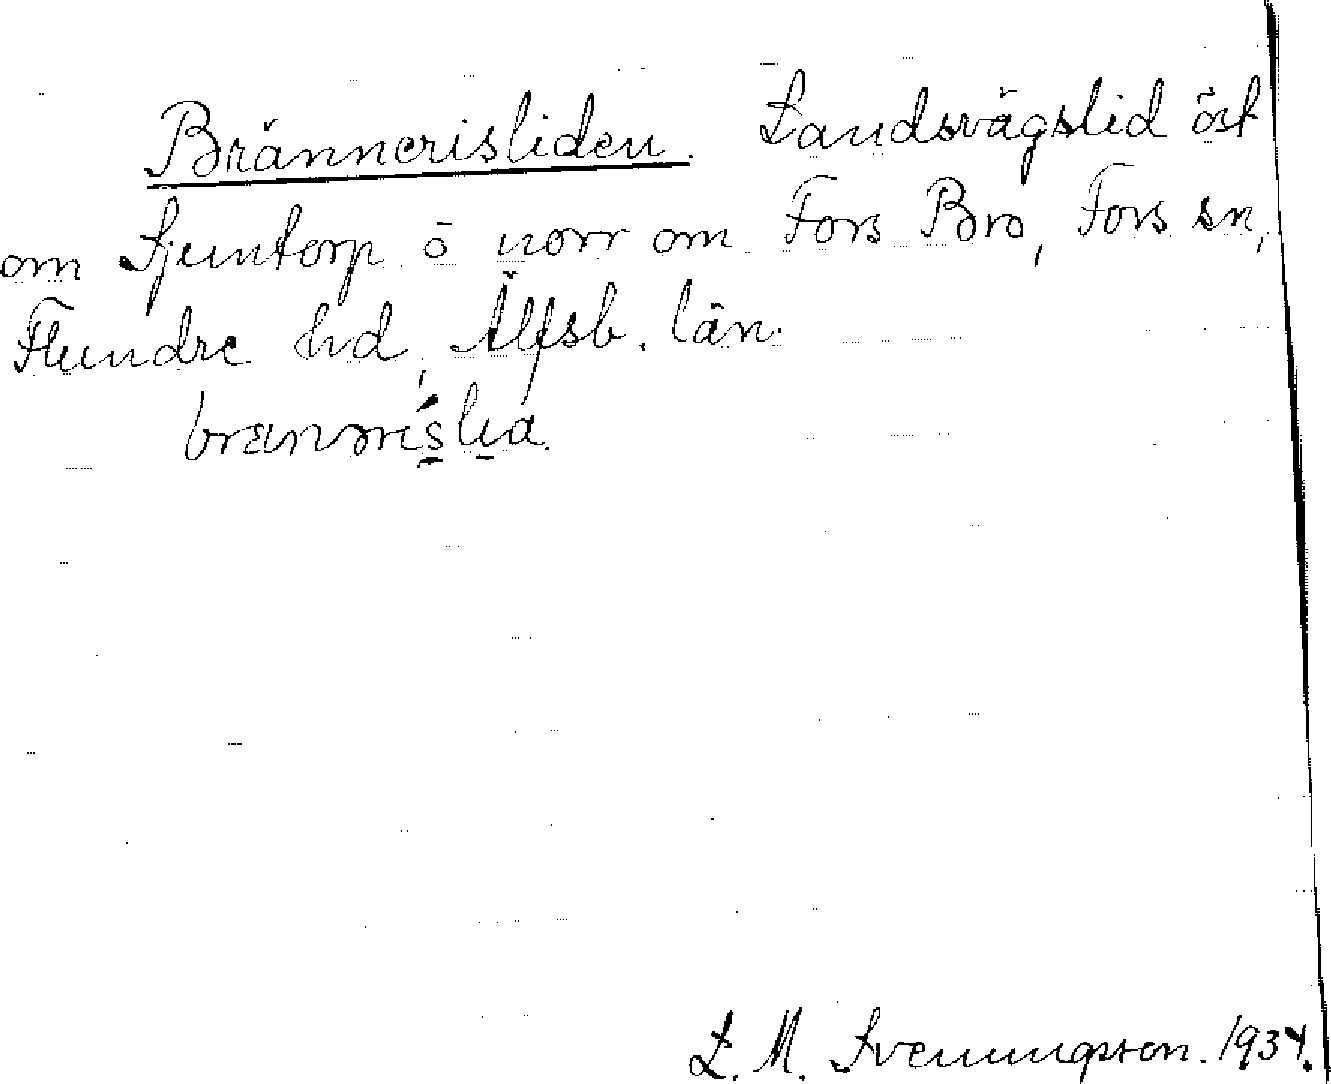 Brännerisliden. Landsvägslid öst
om Sjuntorp o norr om Fors Bro, Fors sn,
Flundre hd, Älfsb. län.
L. M. Svenungsson. 1934.